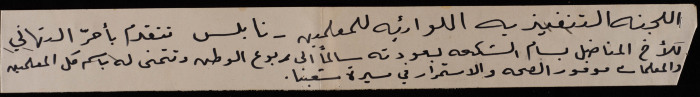 اللجنه التنفيذيه اللوائيه للمعلمين - نابلس تتقدم بأحر التهاني
للأخ المناضل بسام الشكعه بعودته سالماً الى ربوع الوطن وتتمنى له باسم كل المعلمين
والمعلمات موفور الصحه والاستمرار في مسيرة شعبنا.